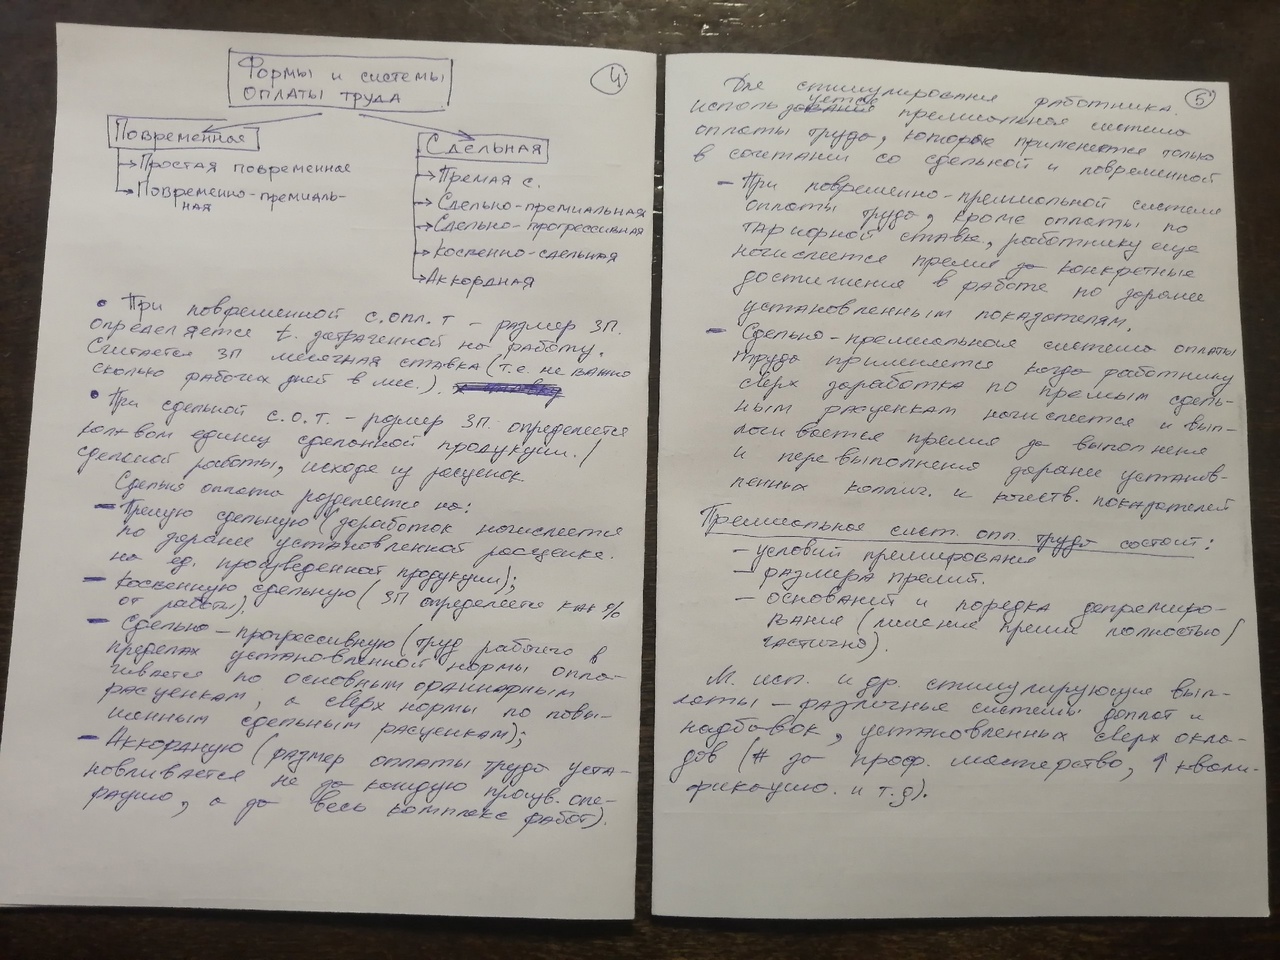 4
Формы и системы
оплаты труда
Повременная
Простая повременная
Повременно-премиаль-
ная
Сдельная
Прямая с.
Сдельно-премиальная
Сдельно-прогрессивная
Косвенно-сдельная
Аккордная
• При повременной с. опл. т – размер ЗП.
определяется t. затраченной на работу.
Считается ЗП месячная ставка (т.е. не важно
сколько рабочих дней в мес.).
• При сдельной с.о.т. – размер ЗП определяется
кол-вом единиц сделанной продукции. /
сделной работы, исходя из расценок
Сдельня оплата разделяется на:
– Прямую сдельную (заработок начисляется
по заранее установленной расценке.
на ед. произведенной продукции);
– Косвенную сдельную (ЗП определяется как %
от работы);
– Сдельно-прогрессивную (труд рабочего в
пределах установленной нормы опла-
чивается по основным одинарным
расценкам, а сверх нормы по повы-
шенным сдельным расценкам);
– Аккордную (размер оплаты труда уста-
новливается не за каждую произв. опе-
рацию, а за весь комплекс работ).
5
Для стимулирования работника.
используется премиальная система
оплаты труда, которая применяется только
в сочетании со сдельной и повременной
– При повременно-премиальной системе
оплаты труда, кроме оплаты по
тарифной ставке, работнику еще
начисляется премия за конкретные
достижения в работе по заранее
установленным показателям.
– Сдельно-премиальная система оплаты
труда применяется когда работнику
сверх заработка по прямым сдель-
ным расценкам начисляется и вып-
лачивается премия за выполнения
и перевыполнения заранее установ-
ленных колич. и качеств. показателей
Премиальная сист. опл. труда состоит:
– условий премирования
– размера премий.
– оснований и порядка депремиро-
вания (лишение премии полностью/
частично).
М. исп. и др. стимулирующие вып-
латы – различные системы доплат и
надбавок, установленных сверх окла-
дов (# за проф. мастерство, ↑ квали-
фикацию. и т.д).